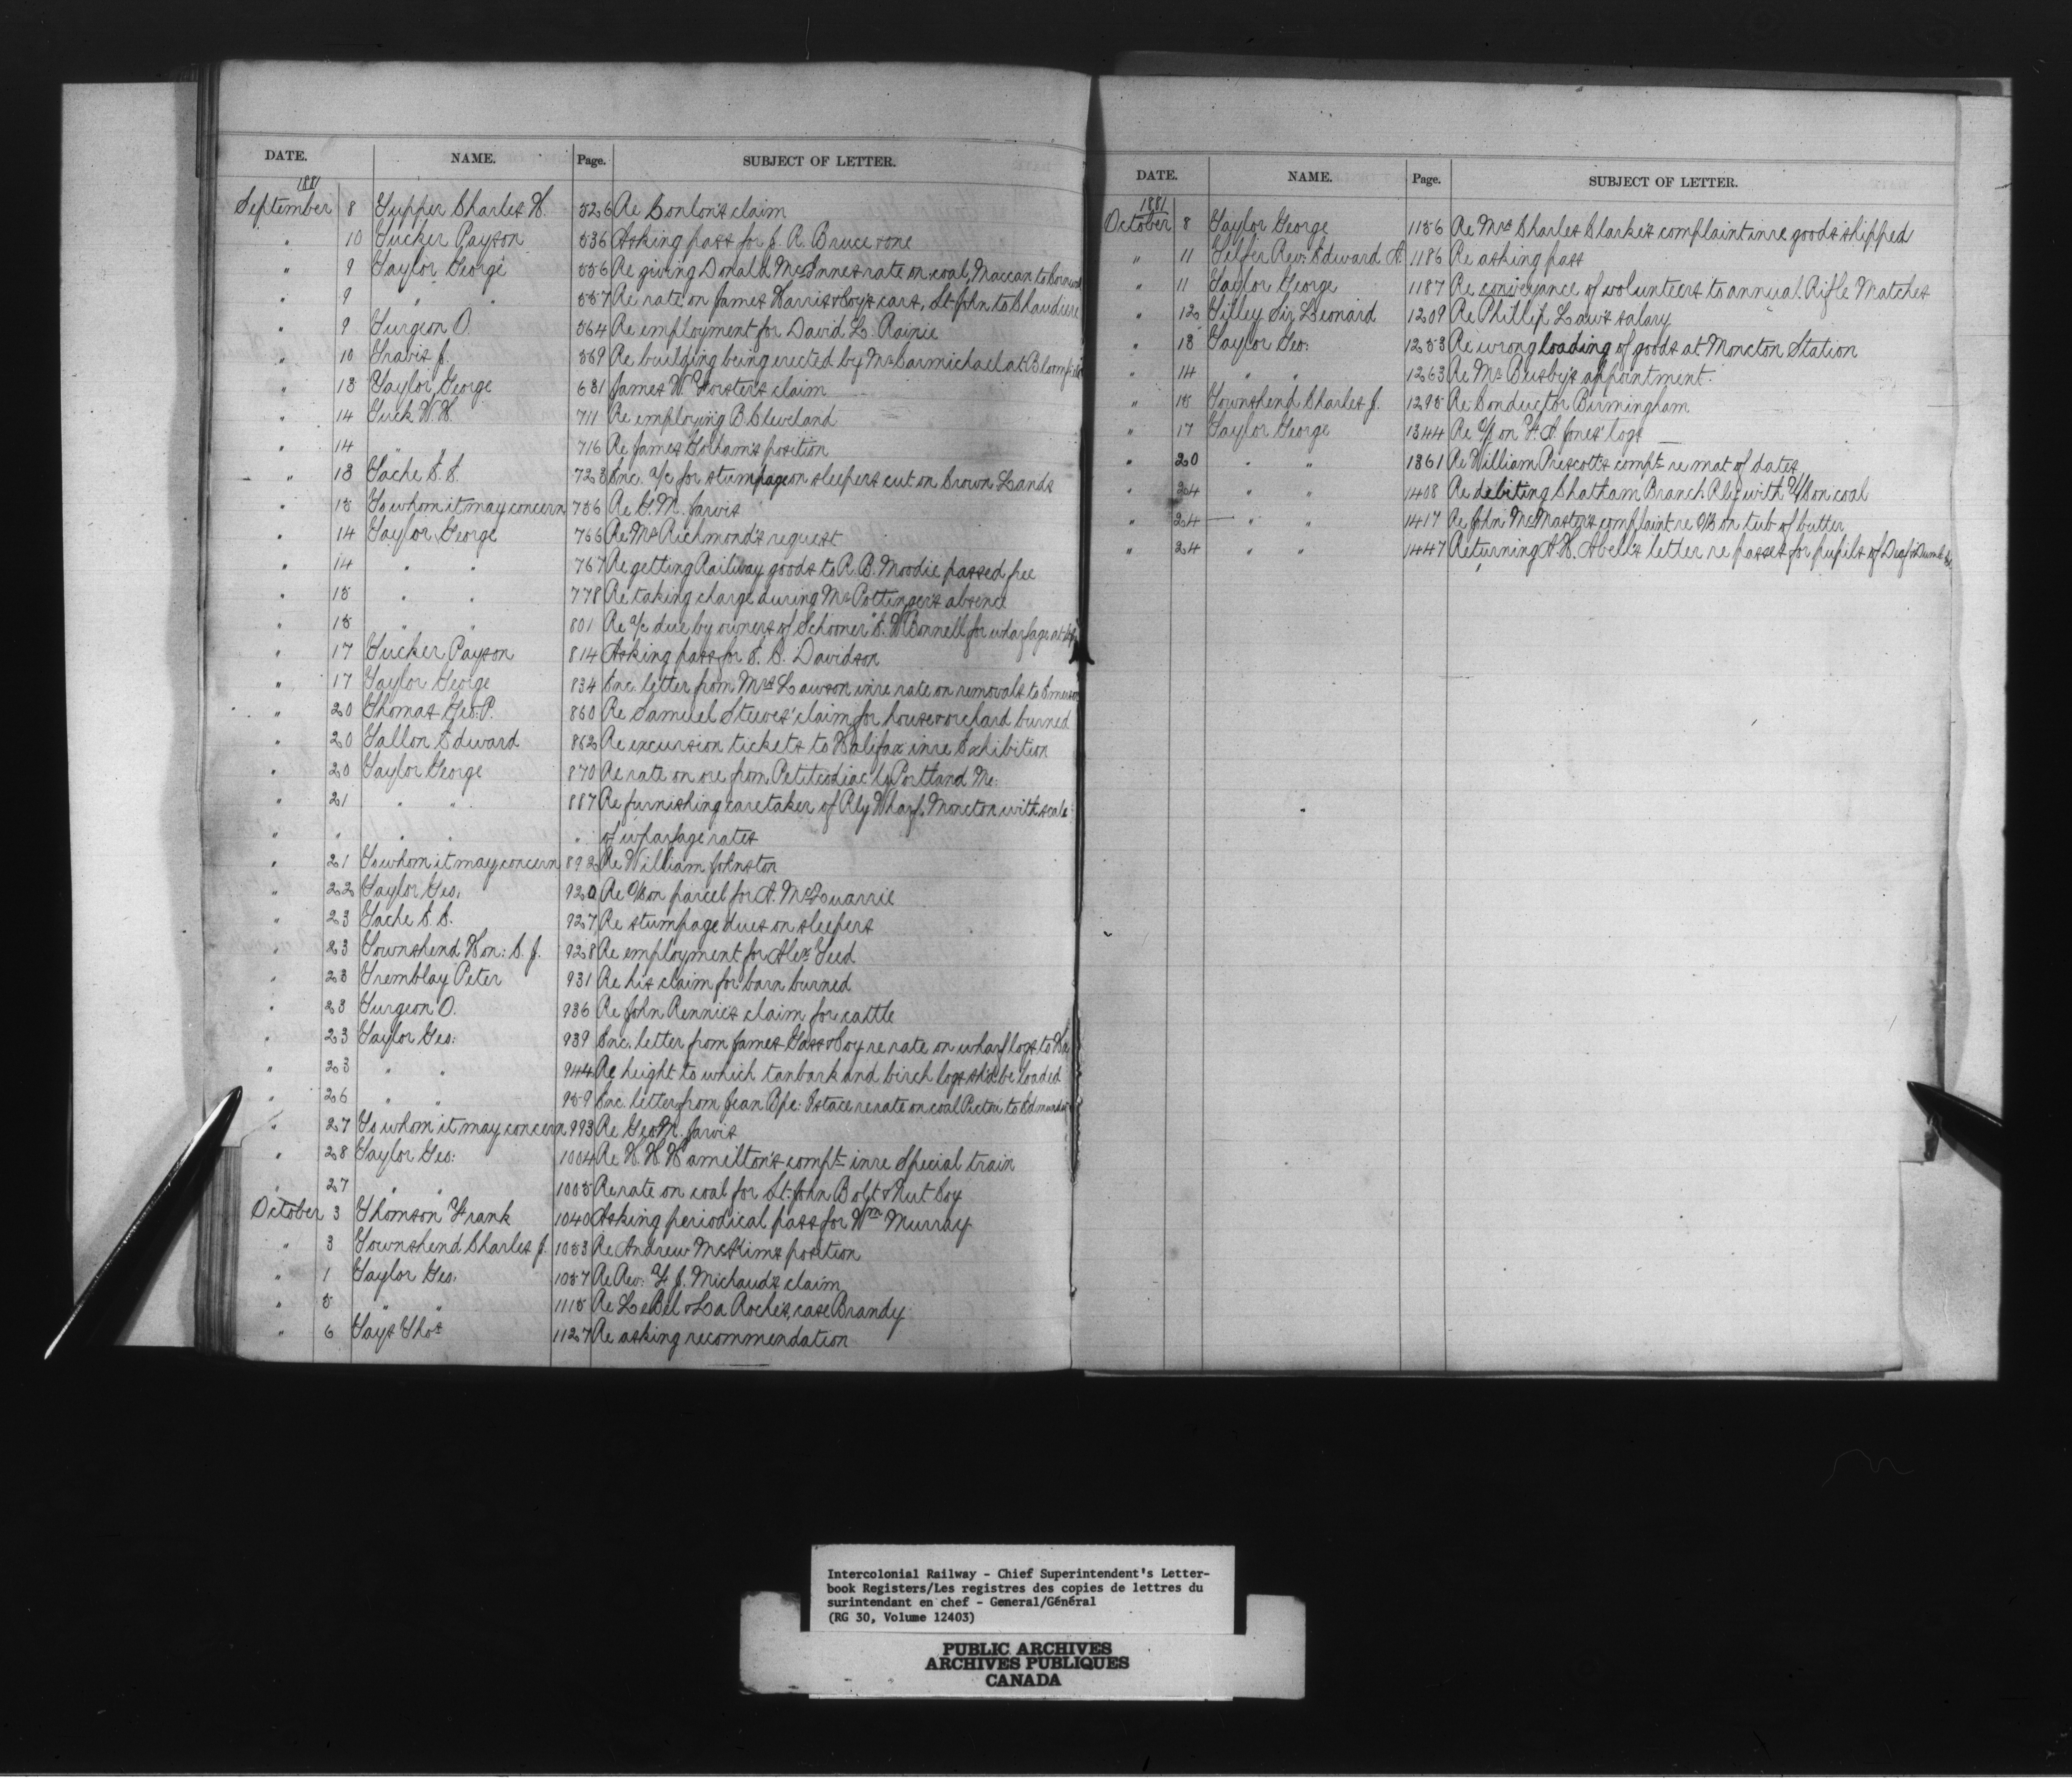 DATE. NAME. Page. SUBJECT OF LETTER.
1881
September 8 Tupper Charles H. 526 Re Conlon's claim
" 10 Tucker Payson 536 Asking pass for J. R. Bruce & one
" 9 Taylor George 556 Re giving Donald McInnes rate on coal, Maccan to
" 9 " " 557 Re rate on James Harris & Coy's cars, St. John to Chaudiere
" 9 Turgeon O. 564 Re employment for David L. Rainie
" 10 Travis J. 569 Re building being erected by Mr Carmichael at
" 13 Taylor George 631 James W. Forster's claim
" 14 Tuck W. H. 711 Re employing B. Cleveland
" 14 " 716 Re James Gorham's position
" 13 Tache E. E. 723 Enc. a/c for stumpage on sleepers cut on Crown Lands
" 15 To whom it may concern 756 Re G. M. Jarvis
" 14 Taylor George 766 Re Mr Richmond's request
" 14 " " 767 Re getting Railway goods to R. B. Moodie passed free
" 15 " " 778 Re taking charge during Mr Pottinger's absence
" 15 " " 801 Re a/c due by owners of Schooner "E. W. Bonnell for wharfage at
" 17 Tucker Payson 814 Asking pass for E. C. Davidson
" 17 Taylor George 834 Enc. letter from Mrs Lawson in re rate on removals to Emerson
" 20 Thomas Geo: P. 860 Re Samuel Steeves' claim for house & orchard burned
" 20 Tallon Edward 862 Re excursion tickets to Halifax in re Exhibition
" 20 Taylor George 870 Re rate on ore from Petitcodiac to Portland Me:
" 21 " " 887 Re furnishing caretaker of Rly Wharf, Moncton with scale
" " " " " of wharfage rates
" 21 To whom it may concern 892 Re William Johnston
" 22 Taylor Geo. 920 Re O/C on parcel for A. McQuarrie
" 23 Tache E. E. 927 Re stumpage dues on sleepers
" 23 Townshend Hon: C. J. 928 Re employment for Alex Teed
" 23 Tremblay Peter 931 Re his claim for barn burned
" 23 Turgeon O. 936 Re John Rennie's claim for cattle
" 23 Taylor Geo: 939 Enc. letter from James Yass & Coy re rate on wharf logs to
" 23 " " 944 Re height to which tanbark and birch logs sh'd be loaded
" 26 " " 959 Enc. letter from Jean Bpe: Istace re rate on coal Pictou to
" 27 To whom it may concern 993 Re Geo M. Jarvis
" 28 Taylor Geo: 1004 Re H. H. Hamilton's compt in re Special train
" 27 " " 1005 Re rate on coal for St. John Bolt & Nut Coy
October 3 Thomson Frank 1040 Asking periodical pass for Wm Murray
" 3 Townshend Charles J. 1053 Re Andrew McKim's position
" 1 Taylor Geo. 1057 Re Rev: F. J. Michaud's claim
" 5 " " 1115 Re LeBel & La Roche's, case Brandy
" 6 Tays Thos 1127 Re asking recommendation
DATE. NAME. Page. SUBJECT OF LETTER.
1881
October 8 Taylor George 1156 Re Mrs Charles Clarke's complaint in re goods shipped
" 11 Telfer Rev: Edward A. 1186 Re asking pass
" 11 Taylor George 1187 Re conveyance of volunteers to annual Rifle Matches
" 12 Tilley Sir Leonard 1209 Re Phillip Law's salary
" 13 Taylor Geo: 1253 Re wrong loading of goods at Moncton Station
" 14 " " 1263 Re Mr Busby's appointment.
" 15 Townshend Charles J. 1295 Re Conductor Birmingham
" 17 Taylor George 1344 Re O/C on F. A. Jones' logs
" 20 " " 1361 Re William Prescott's compt re mat of dates
" 24 " " 1408 Re debiting Chatham Branch Rly with O/C on coal
" 24 " " 1417 Re John McMaster's complaint re O/C on tub of butter
" 24 " " 1447 Returning A. H. Abell's letter re passes for pupils of Deaf & Dumb
Intercolonial Railway - Chief Superintendent's Letter-
book Registers/Les registres des copies de lettres du
surintendant en chef - General/Général
(RG 30, Volume 12403)
PUBLIC ARCHIVES
ARCHIVES PUBLIQUES
CANADA